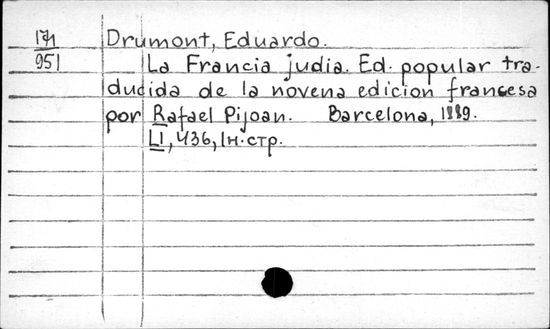 171
951
Drumont, Eduardo.
La Francia judia. Ed. popular tra-
ducida de la novena edicion francesa
por Rafael Pijoan. Barcelona, 1889.
LI, 436, 1н.стр.